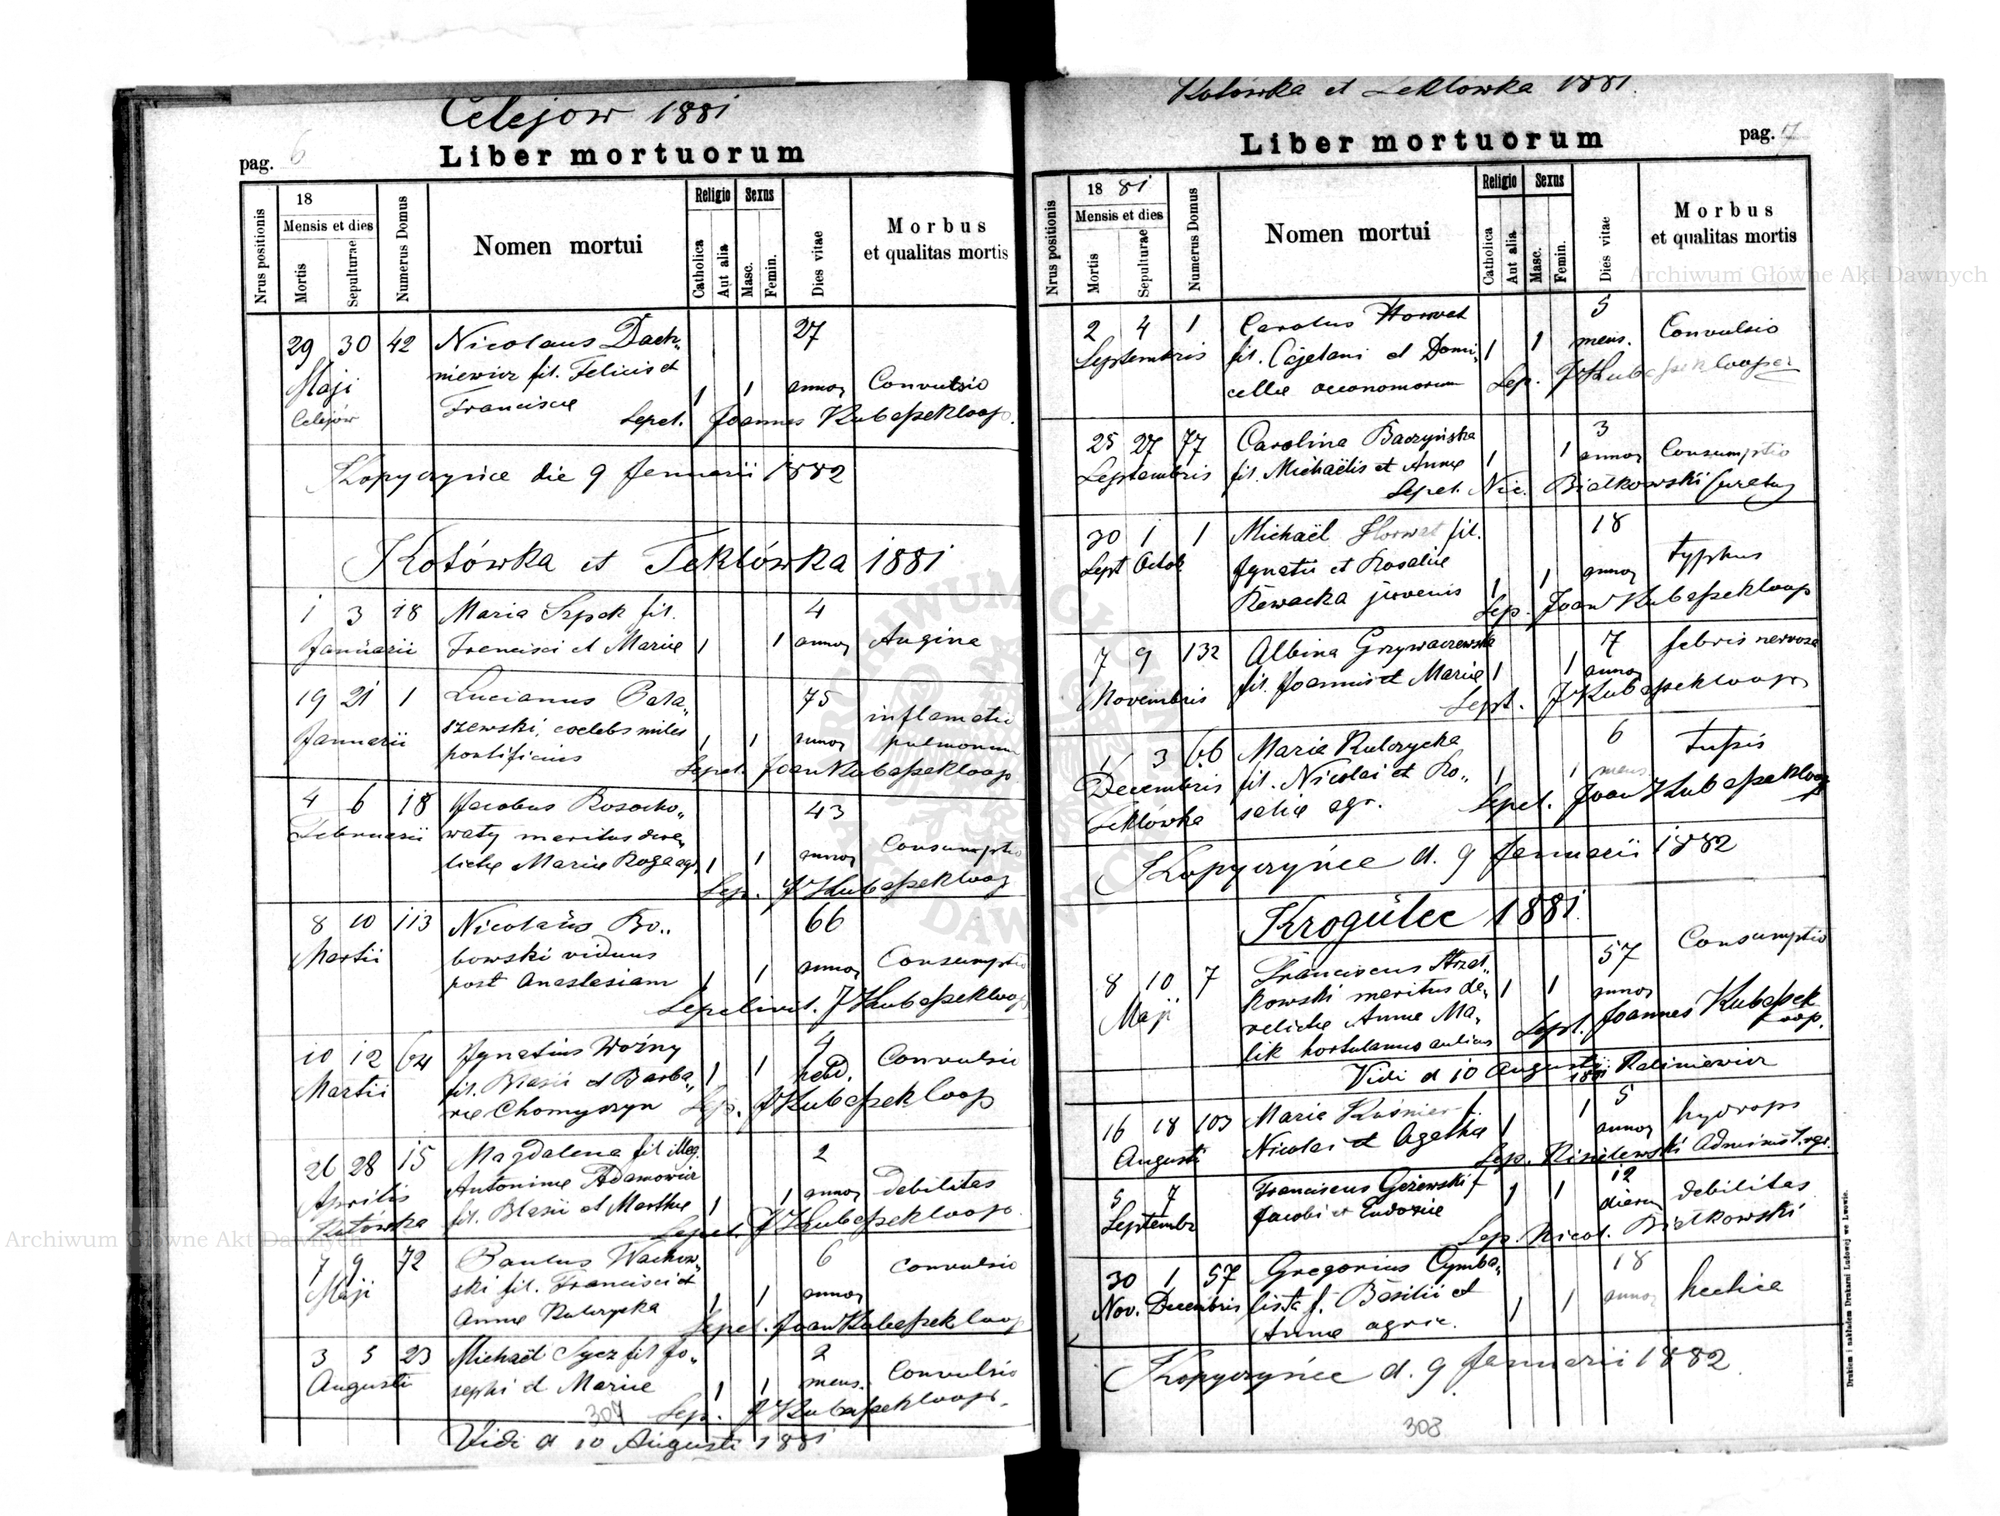 Celejów 1881
pag. 6
Liber mortuorum
Nrus positionis
18
Mensis et dies
Mortis
Sepulturae
Numerus Domus
Nomen mortui
Religio
Catholica
Aut alia
Sexus
Masc.
Femin.
Dies vitae
Morbus
et qualitas mortis
29 30 42 Nicolaus Dach-
niewicz fil. Felicis et
Maji
Franciscae
Celejów
1 1 27
annor
Convulsio
Sepel. Joannes Kubassek loop.
Kopyczyńce die 9 Januarii 1882
Kotówka et Teklówka 1881
1 3 18 Maria Szpak fil.
Januarii Francisci et Mariae 1 1 4
annor Angina
19 21 1 Lucianus Bata-
szewski, coelebs miles
Januarii pontificius 1 1 75
annor inflamatio
pulmonum
Sepel. Joan Kubassek loop
4 6 18 Jacobus Rosocho-
Februarii waty maritus dere-
lictae Mariae Roga agr. 1 1 43
annor Consumptio
Sep. J Kubassek loop
8 10 113 Nicolaus Bo-
Martii bowski viduus
post Anastasiam 1 1 66
annor Consumptio
Sepelivit. J Kubassek loop
10 12 64 Ignatius Woźny
Martii fil. Blasii et Barba-
rae Chomyszyn 1 1 4
hebd. Convulsio
Sep. J Kubassek loop
26 28 15 Magdalena fil illeg.
Aprilis Antoninae Adamowicz
Kotówka fil. Blasii et Marthae 1 1 2
annor debilitas
Sepel. J Kubassek loop.
7 9 72 Paulus Wachow-
Maji ski fil. Francisci et
Annae Kulczycka 1 1 6
annor Convulsio
Sepel. Joan Kubassek loop
3 5 23 Michaël Sycz fil Jo-
Augusti sephi et Mariae 1 1 2
mens. Convulsio
Sep. J Kubassek loop.
307
Vidi d 10 Augusti 1881
Kotówka et Teklówka 1881.
pag. 7
Liber mortuorum
Nrus positionis
18 81
Mensis et dies
Mortis
Sepulturae
Numerus Domus
Nomen mortui
Religio
Catholica
Aut alia
Sexus
Masc.
Femin.
Dies vitae
Morbus
et qualitas mortis
2 4 1 Carolus Horwat
Septembris fil. Cajetani et Domi-
cellae oeconomorum 1 1 5
mens. Convulsio
Sep. J Kubassek looper
25 27 77 Carolina Baczyńska
Septembris fil. Michaëlis et Annae 1 1 3
annor Consumptio
Sepel. Nic. Białkowski Curatus
30 1 1 Michaël Horwat fil.
Sept Octob Ignatii et Rosaliae
juvenis 1 1 18
annor typhus
Sep. Joan Kubassek loop
7 9 132 Albina Grzywaczewska
Novembris fil. Joannis et Mariae 1 1 7
annor febris nervosa
Sept. J Kubassek loop
1 3 66 Maria Kulczycka
Decembris fil. Nicolai et Ro-
Teklówka saliae agr. 1 1 6
mens. tussis
Sepel. Joan Kubassek loop
Kopyczyńce d. 9 Januarii 1882
Krogulec 1881.
8 10 7 Franciscus Strzel-
Maji kowski maritus de-
relictae Annae Ma-
lik hortulanus aulicus 1 1 57
annor Consumptio
Sept. Joannes Kubassek
loop.
Vidi d 10 Augusti 1881 Kaliniewicz
16 18 103 Maria Kuśnier f.
Augusti Nicolai et Agatha 1 1 5
annor hydrops
Sep. Kisielewski Administ.
5 7 Franciscus Geżewski f
Septembr Jacobi et Ludovicae 1 1 12
dierum debilitas
Sep. Nicol. Białkowski
30 1 57 Gregorius Cymba-
Nov. Decembris lista f. Basilii et
Annae agric. 1 1 18
annor hectica
Kopyczyńce d. 9 Januarii 1882.
308
Drukiem i nakładem Drukarni Ludowej we Lwowie.
Archiwum Główne Akt Dawnych
Archiwum Główne Akt Dawnych
ARCHIWUM GŁÓWNE AKT DAWNYCH